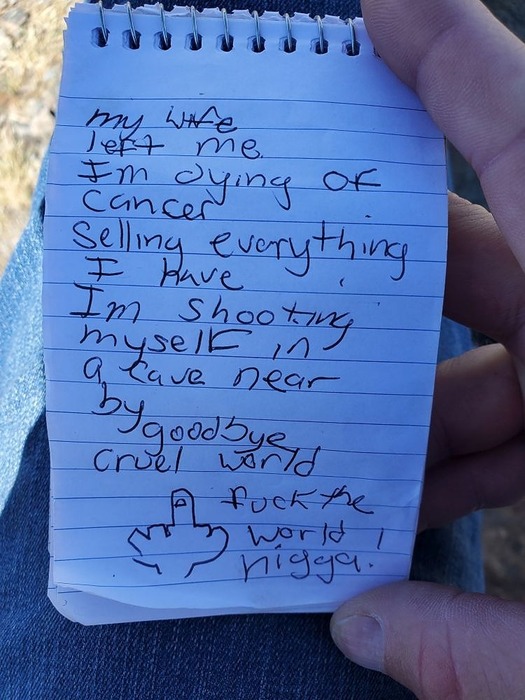 my wife
left me.
I'm dying of
cancer
Selling everything
I have
I'm shooting
myself in
a cave near
by
goodbye
cruel world
fuck the
world!
nigga.